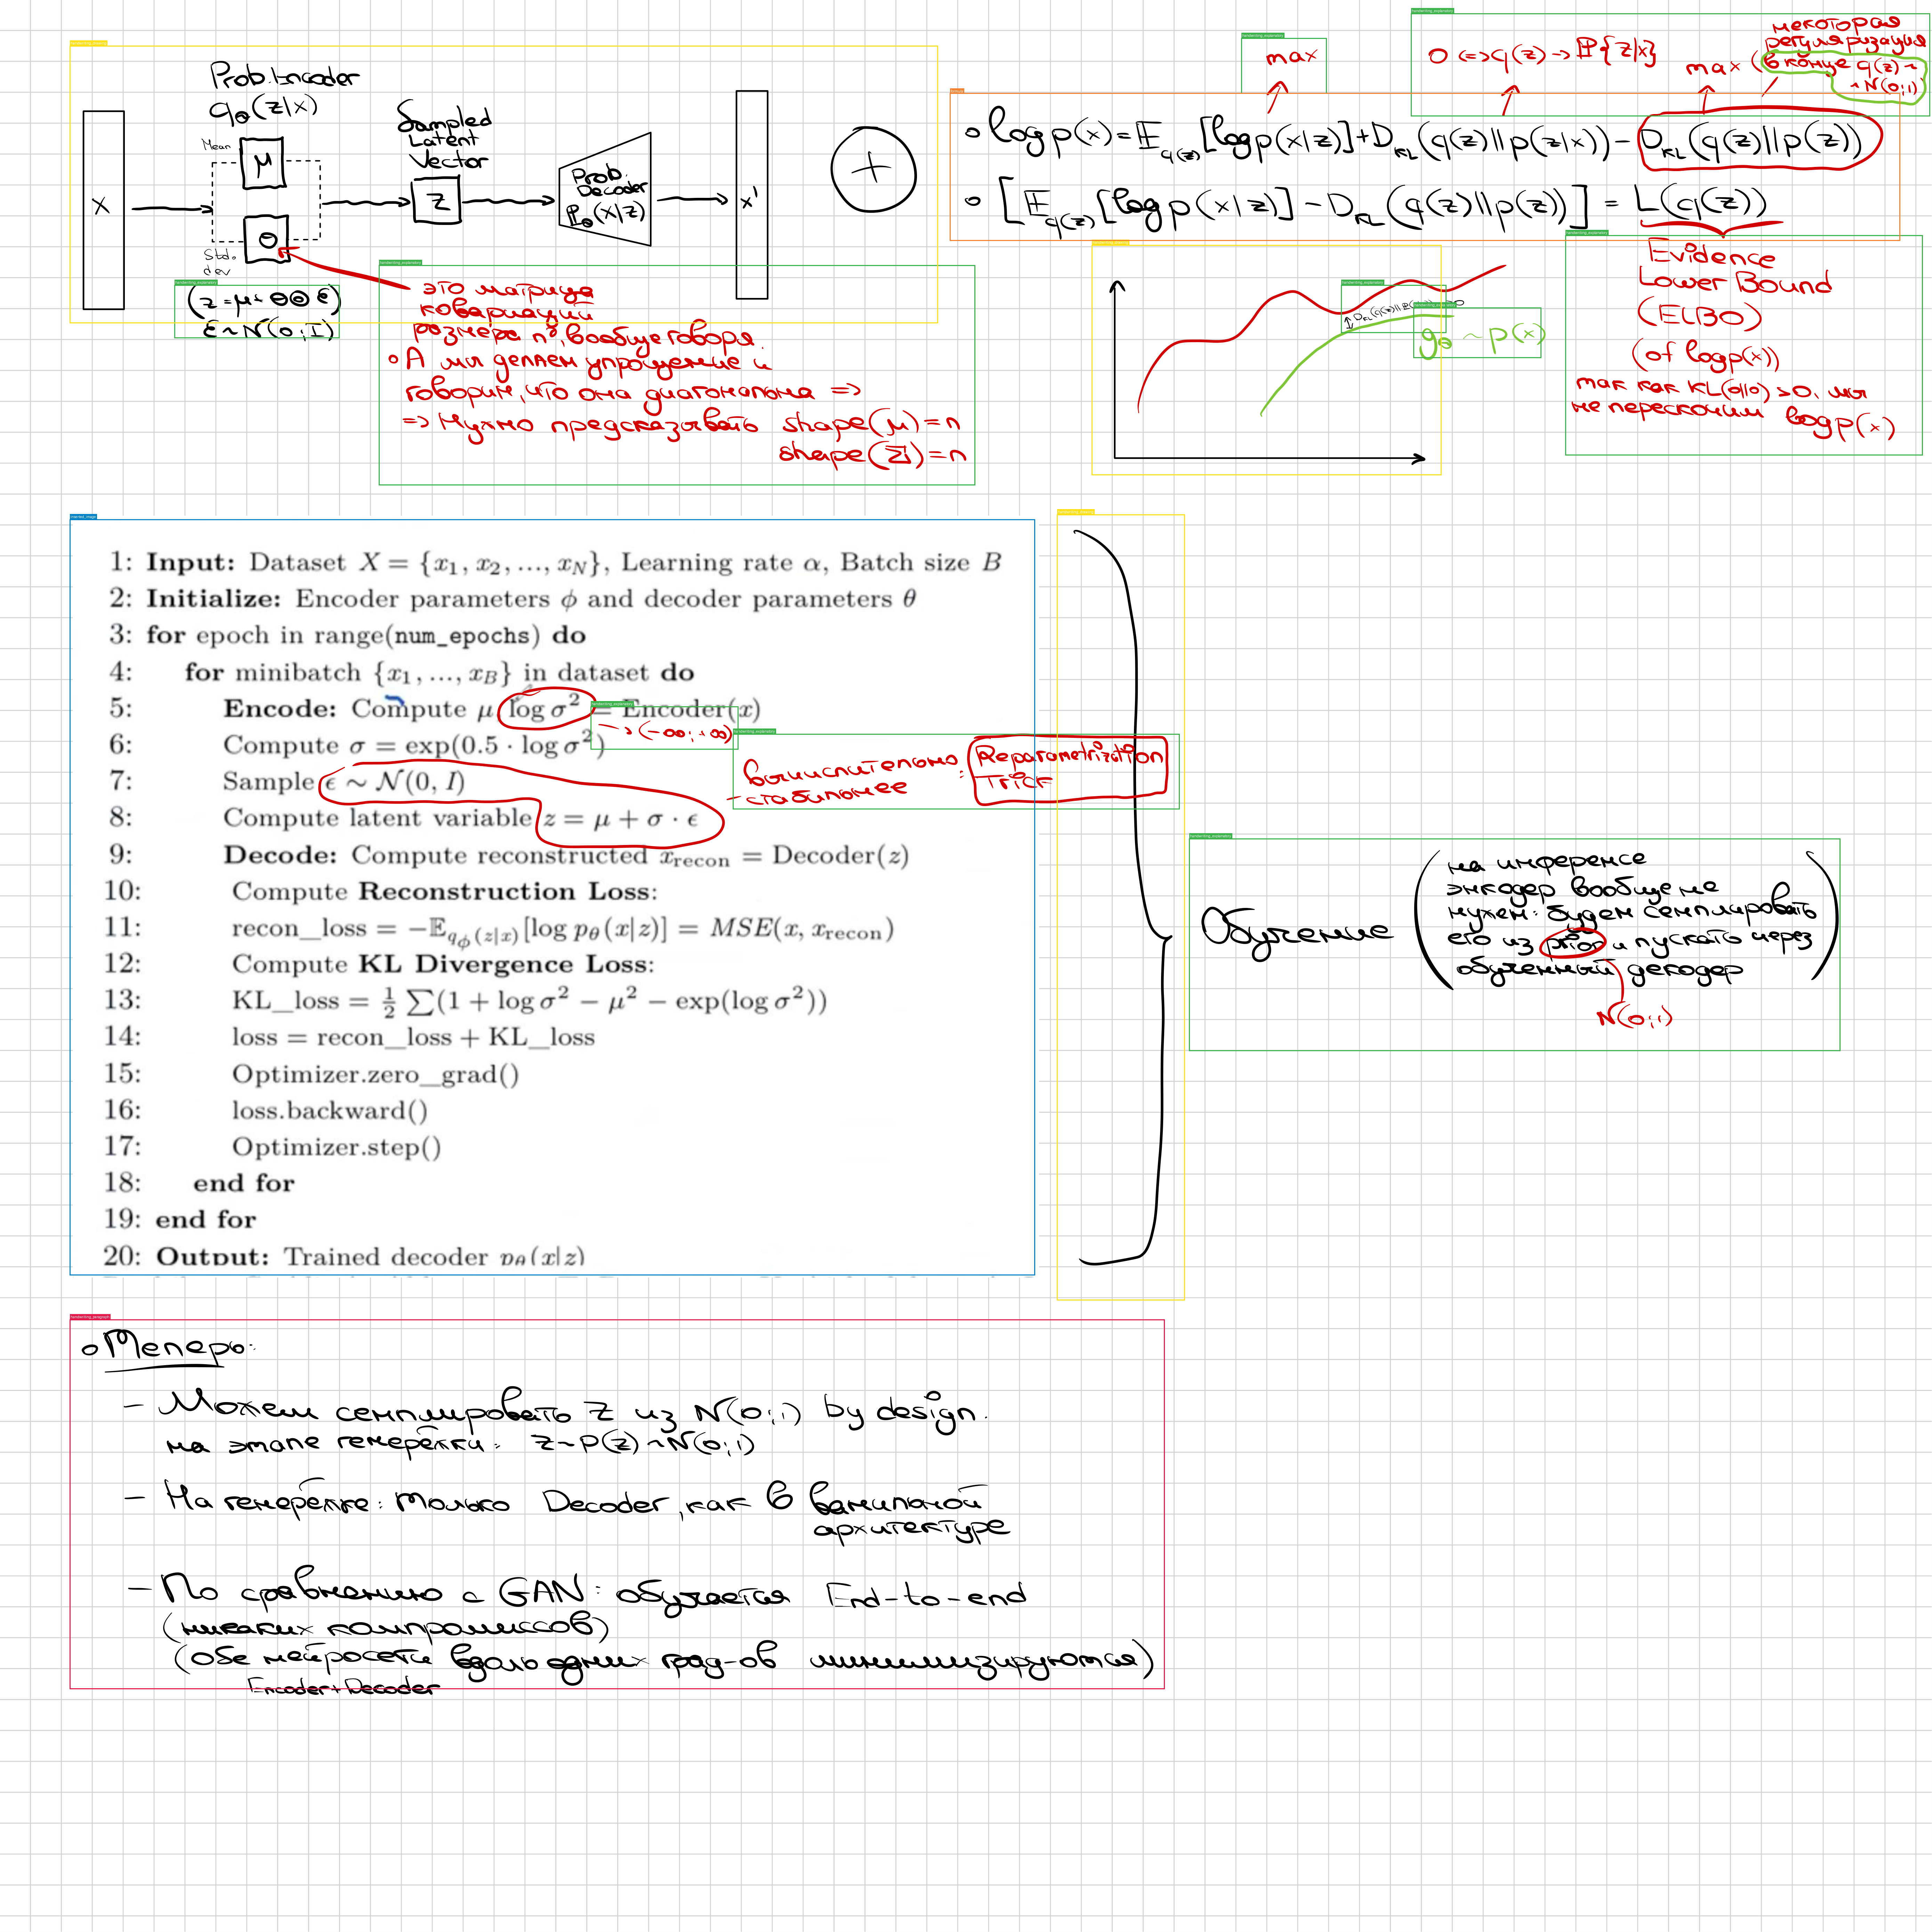 Prob. Encoder
q_Θ(z|x)
Mean
μ
Std.
dev
Θ
X
Sampled
Latent
Vector
z
Prob.
Decoder
P_Θ(x|z)
x'
+
(z = μ + Θ ⊙ ε)
ε ~ N(0; I)
это матрица
ковариаций
размера n², вообще говоря.
∘ А мы делаем упрощение и
говорим, что она диагональна =>
=> Нужно предсказывать shape(μ) = n
shape(Σ) = n
max
0 <=> q(z) -> P{z|x}
некоторая
регуляризация
max (в конце q(z) ~
~ N(0;1)
∘ log p(x) = E_q(z) [log p(x|z)] + D_KL(q(z)||p(z|x)) - D_KL(q(z)||p(z))
∘ [E_q(z) [log p(x|z)] - D_KL(q(z)||p(z))] = L(q(z))
g_Θ ~ p(x)
Evidence
Lower Bound
(ELBO)
(of log p(x))
так как KL(o||o) >0, мы
не перескочим log p(x)
1: Input: Dataset X = {x₁, x₂, ..., x_N}, Learning rate α, Batch size B
2: Initialize: Encoder parameters ϕ and decoder parameters θ
3: for epoch in range(num_epochs) do
4: for minibatch {x₁, ..., x_B} in dataset do
5: Encode: Compute μ log σ² = Encoder(x)
-> (-∞; +∞)
6: Compute σ = exp(0.5 · log σ²)
7: Sample ϵ ∼ N(0, I)
вычислительно
- стабильнее
: Reparametrization
Trick
8: Compute latent variable z = μ + σ · ϵ
9: Decode: Compute reconstructed x_recon = Decoder(z)
10: Compute Reconstruction Loss:
11: recon_loss = −E_qϕ(z|x)[log p_θ(x|z)] = MSE(x, x_recon)
12: Compute KL Divergence Loss:
13: KL_loss = ½ ∑(1 + log σ² − μ² − exp(log σ²))
14: loss = recon_loss + KL_loss
15: Optimizer.zero_grad()
16: loss.backward()
17: Optimizer.step()
18: end for
19: end for
20: Output: Trained decoder p_θ(x|z)
Обучение
(на инференсе
энкодер вообще не
нужен: будем семплировать
его из prior и пускать через
обученный декодер)
N(0;1)
∘ Теперь:
- Можем семплировать z из N(0;1) by design.
на этапе генерёжки: z ~ P(z) ~ N(0;1)
- На генерёжке: только Decoder, как в ванильной
архитектуре
- По сравнению с GAN: обучается End-to-end
(никаких компромиссов)
(обе нейросети вдоль одних град-ов минимизируются)
Encoder+Decoder